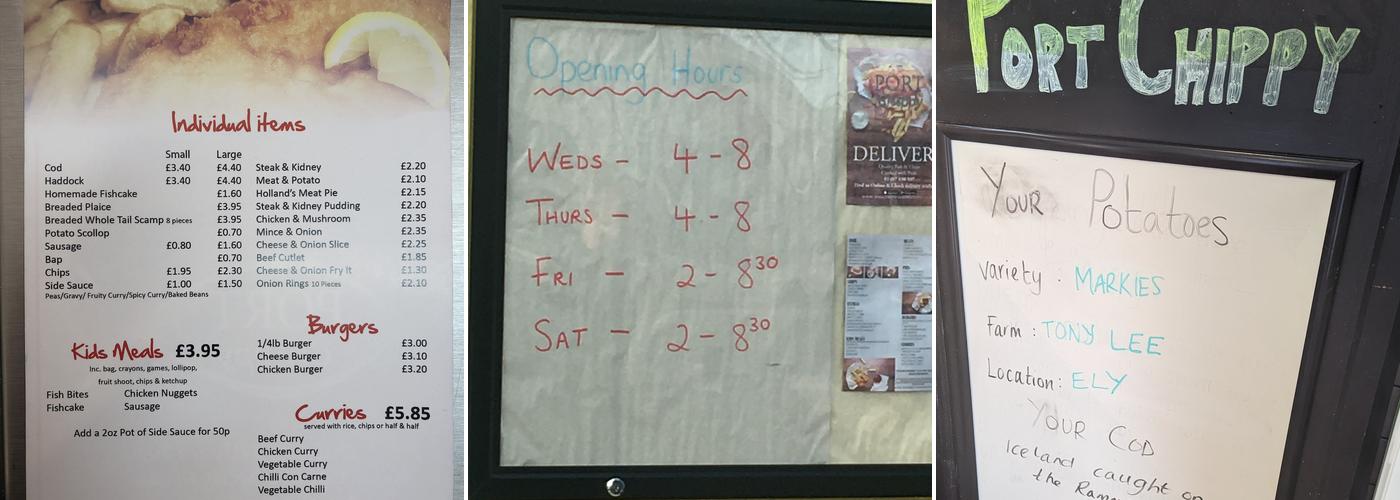 Individual items
Small Large
Cod £3.40 £4.40
Haddock £3.40 £4.40
Homemade Fishcake £1.60
Breaded Plaice £3.95
Breaded Whole Tail Scamp 8 pieces £3.95
Potato Scollop £0.70
Sausage £0.80 £1.60
Bap £0.70
Chips £1.95 £2.30
Side Sauce £1.00 £1.50
Peas/Gravy/ Fruity Curry/Spicy Curry/Baked Beans
Steak & Kidney £2.20
Meat & Potato £2.10
Holland's Meat Pie £2.15
Steak & Kidney Pudding £2.20
Chicken & Mushroom £2.35
Mince & Onion £2.35
Cheese & Onion Slice £2.25
Beef Cutlet £1.85
Cheese & Onion Fry It £1.30
Onion Rings 10 Pieces £2.10
Kids Meals £3.95
Inc. bag, crayons, games, lollipop,
fruit shoot, chips & ketchup
Fish Bites Chicken Nuggets
Fishcake Sausage
Add a 2oz Pot of Side Sauce for 50p
Burgers
1/4lb Burger £3.00
Cheese Burger £3.10
Chicken Burger £3.20
Curries £5.85
served with rice, chips or half & half
Beef Curry
Chicken Curry
Vegetable Curry
Chilli Con Carne
Vegetable Chilli
Opening Hours
WEDS - 4 - 8
THURS - 4 - 8
FRI - 2 - 8 30
SAT - 2 - 8 30
PORT
DELIVER
PORT CHIPPY
YOUR Potatoes
Variety : MARKIES
Farm : TONY LEE
Location : ELY
YOUR COD
Iceland caught on
the